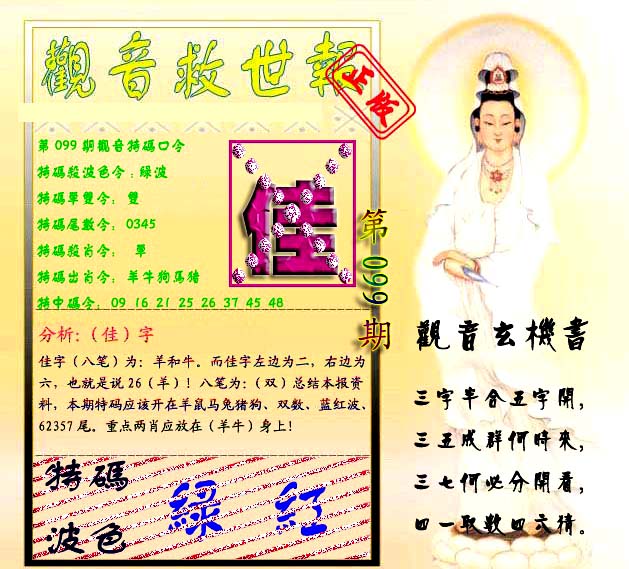 觀音救世報
正版
第099期觀音特碼口令
特碼殺波色令：綠波
特碼單雙令： 雙
特碼尾數令： 0345
特碼殺肖令： 單
特碼出肖令： 羊牛狗馬猪
特中碼令： 09 16 21 25 26 37 45 48
佳
第099期
分析：（佳）字
佳字（八笔）为：羊和牛。而佳字左边为二，右边为
六，也就是说26（羊）！八笔为：（双）总结本报资
料，本期特码应该开在羊鼠马兔猪狗、双数、蓝红波、
62357尾。重点两肖应放在（羊牛）身上！
特碼
波色
綠 紅
觀音玄機書
三字平合五字開，
三五成群何時來，
三七何必分開看，
四一取數四六猜。